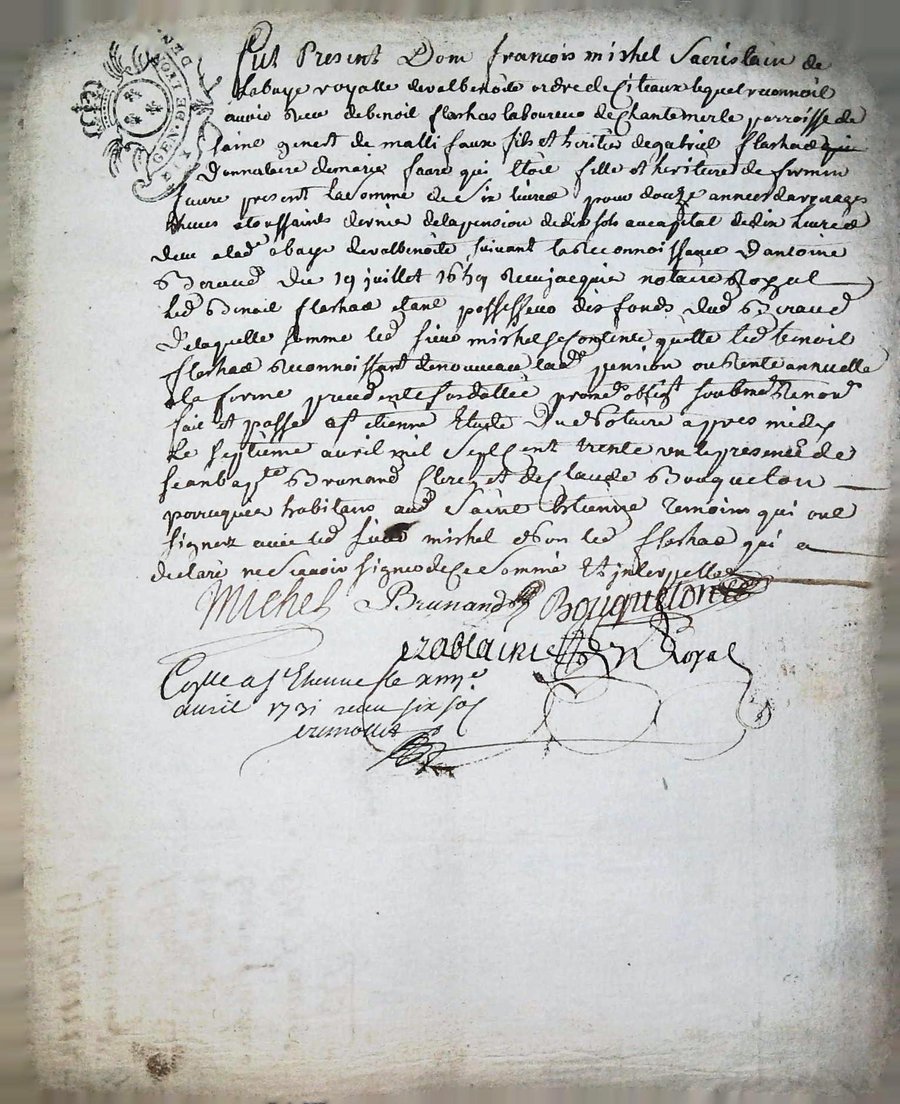 GEN DE LYON
Fut Present Dom francois mishel Sacristain de
Labaye royalle devalbenoite ordre de Siteaux lequel reconnoit
avoir Receu debenoit flashas laboureur de Chantemerle parroisse de
saint genet de mallifaux fils et heritier degabriel flashas
Donnataire demarie faure qui Etoit fille et heritiere de formin
faure present la Somme de Six livres pour douze annees darrerages
Echues a toussaints dernier dela pension de dix sols au capital de dix livres
deue a lade abaye devalbenoite suivant la Reconnoissance d'antoine
Beraud Du 19 juillet 1659 Receu jacquier notaire Royal
led Benoit flashas etant possesseur des fonds dud Beraud
De laquelle somme led sieur mishel se contente quitte led benoit
flashas Reconnoissant denouveau lade pension ou Rente annuelle
a la forme precedente Sus dallée prome obligt soubme Renon
fait et passé a St etienne Etude Du Notaire apres midy
Le septieme avril mil Sept cent trente un en presence de
jean bapte Brunand Clerc et de Claude Bouqueton
perruquier habitans aud Saint Etienne temoins qui ont
signez avec led sieur mishel et non led flashas qui a
declaré ne Scavoir signer de Ce Sommé et interpellé
Michel Brunand Bouqueton
Royal
Contllé a St Etienne le xiiije
avril 1731 receu six sols